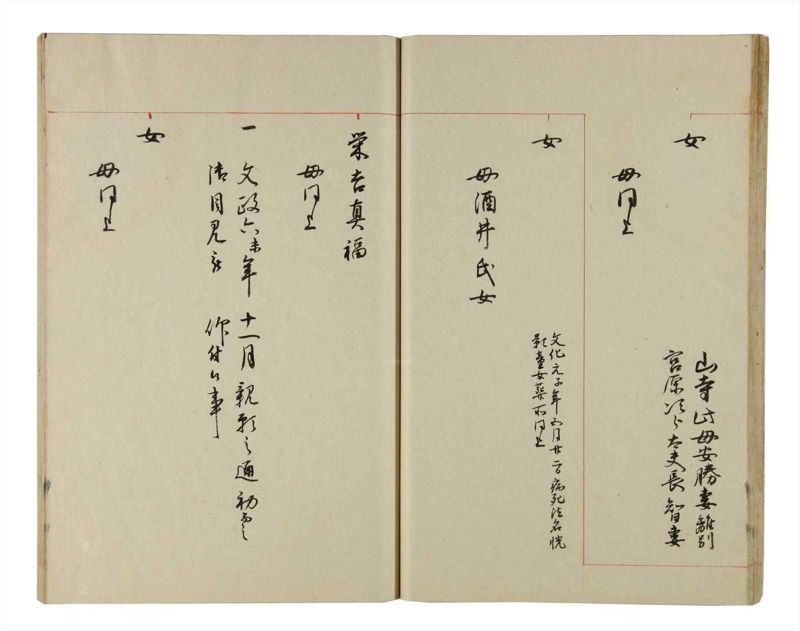 女
母同上
山寺
母安勝妻離別
宮原
太夫長智妻
女
母酒井氏女
文化元子年
月廿
日病死法名
童女葬所同上
栄吉真福
母同上
一 文政六未年 十一月親願之通初而
御目見被 仰付候事
女
母同上